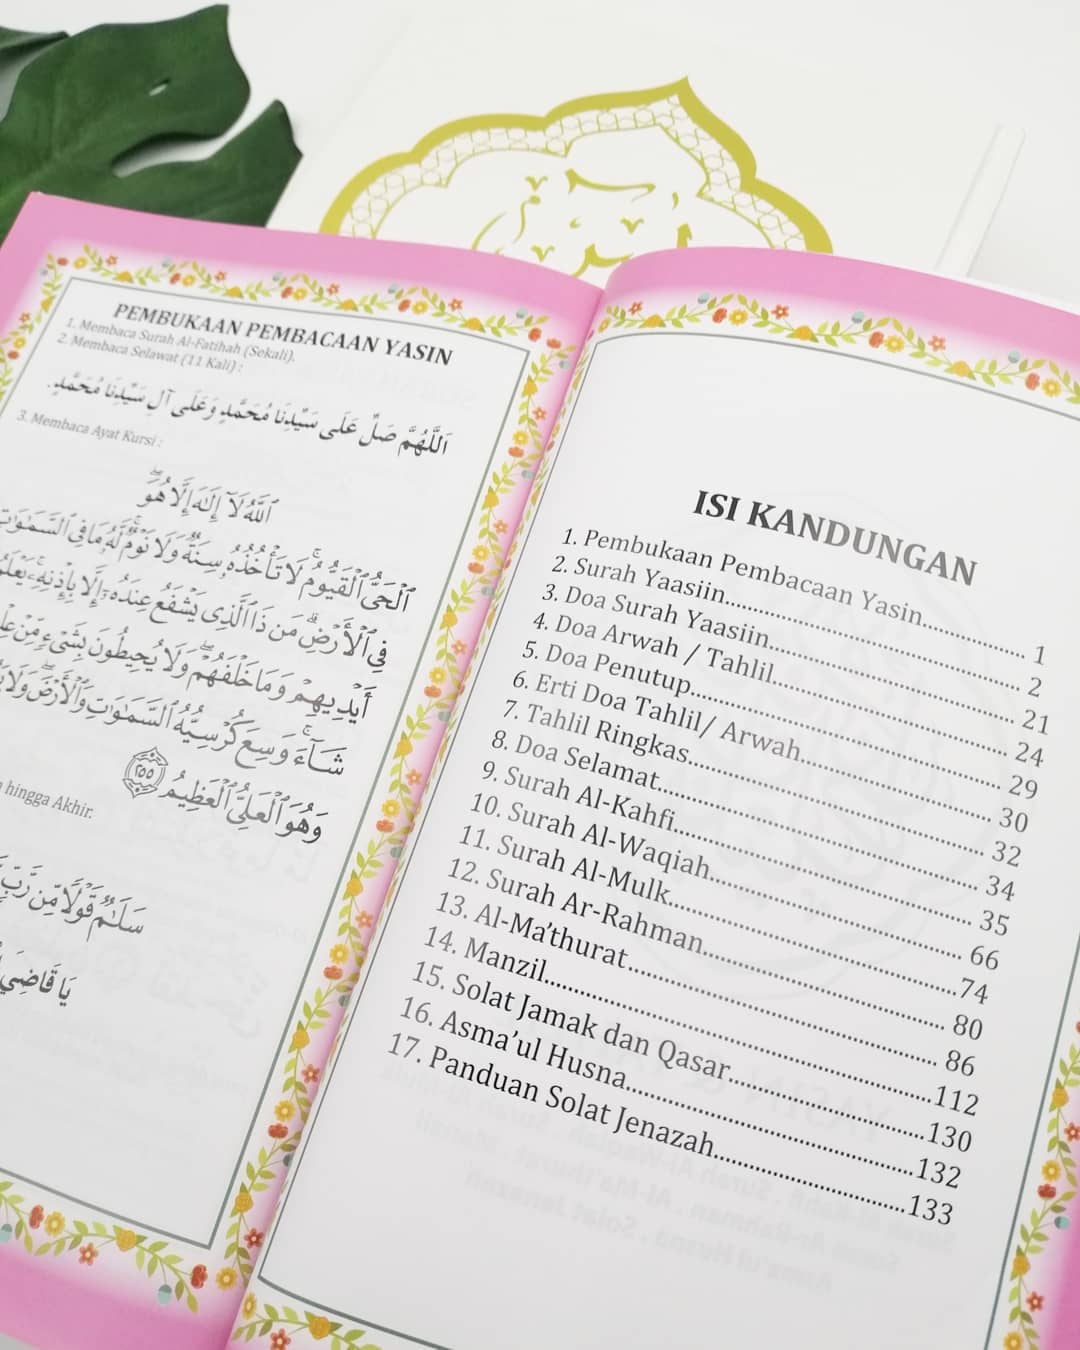 PEMBUKAAN PEMBACAAN YASIN
1. Membaca Surah Al-Fatihah (Sekali).
2. Membaca Selawat (11 Kali) :
اَللَّهُمَّ صَلِّ عَلَى سَيِّدِنَا مُحَمَّدٍ وَعَلَى آلِ سَيِّدِنَا مُحَمَّدٍ.
3. Membaca Ayat Kursi :
ٱللَّهُ لَآ إِلَٰهَ إِلَّا هُوَۖ
ٱلْحَىُّ ٱلْقَيُّومُۚ لَا تَأْخُذُهُۥ سِنَةٌ وَلَا نَوْمٌۚ لَّهُۥ مَا فِى ٱلسَّمَٰوَٰتِ
فِى ٱلْأَرْضِۗ مَن ذَا ٱلَّذِى يَشْفَعُ عِندَهُۥٓ إِلَّا بِإِذْنِهِۦۚ يَعْلَمُ
أَيْدِيهِمْ وَمَا خَلْفَهُمْۖ وَلَا يُحِيطُونَ بِشَىْءٍ مِّنْ
شَآءَۚ وَسِعَ كُرْسِيُّهُ ٱلسَّمَٰوَٰتِ وَٱلْأَرْضَۖ وَلَا
وَهُوَ ٱلْعَلِىُّ ٱلْعَظِيمُ ٢٥٥
hingga Akhir.
سَلَٰمٌ قَوْلًا مِّن رَّبٍّ
يَا قَاضِيَ
ISI KANDUNGAN
1. Pembukaan Pembacaan Yasin.................. 1
2. Surah Yaasiin.................. 2
3. Doa Surah Yaasiin.................. 21
4. Doa Arwah / Tahlil.................. 24
5. Doa Penutup.................. 29
6. Erti Doa Tahlil/ Arwah.................. 30
7. Tahlil Ringkas.................. 32
8. Doa Selamat.................. 34
9. Surah Al-Kahfi.................. 35
10. Surah Al-Waqiah.................. 66
11. Surah Al-Mulk..................74
12. Surah Ar-Rahman.................. 80
13. Al-Ma’thurat.................. 86
14. Manzil..................112
15. Solat Jamak dan Qasar..................130
16. Asma’ul Husna..................132
17. Panduan Solat Jenazah..................133